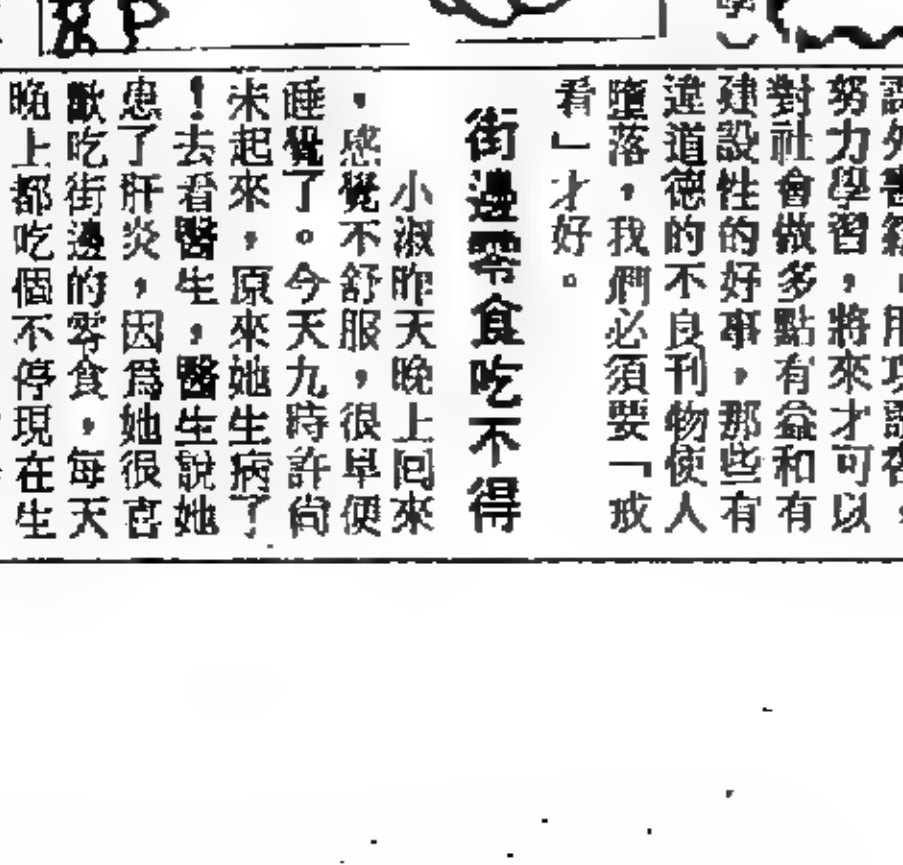 學）
努力學習，將來才可以
對社會做多點有益和有
建設性的好事，那些有
違道德的不良刊物使人
墮落，我們必須要「戒
看」才好。
街邊零食吃不得
小淑昨天晚上回來
，感覺不舒服，很早便
睡覺了。今天九時許尙
未起來，原來她生病了
！去看醫生，醫生說她
患了肝炎，因爲她很喜
歡吃街邊的零食，每天
晚上都吃個不停現在生